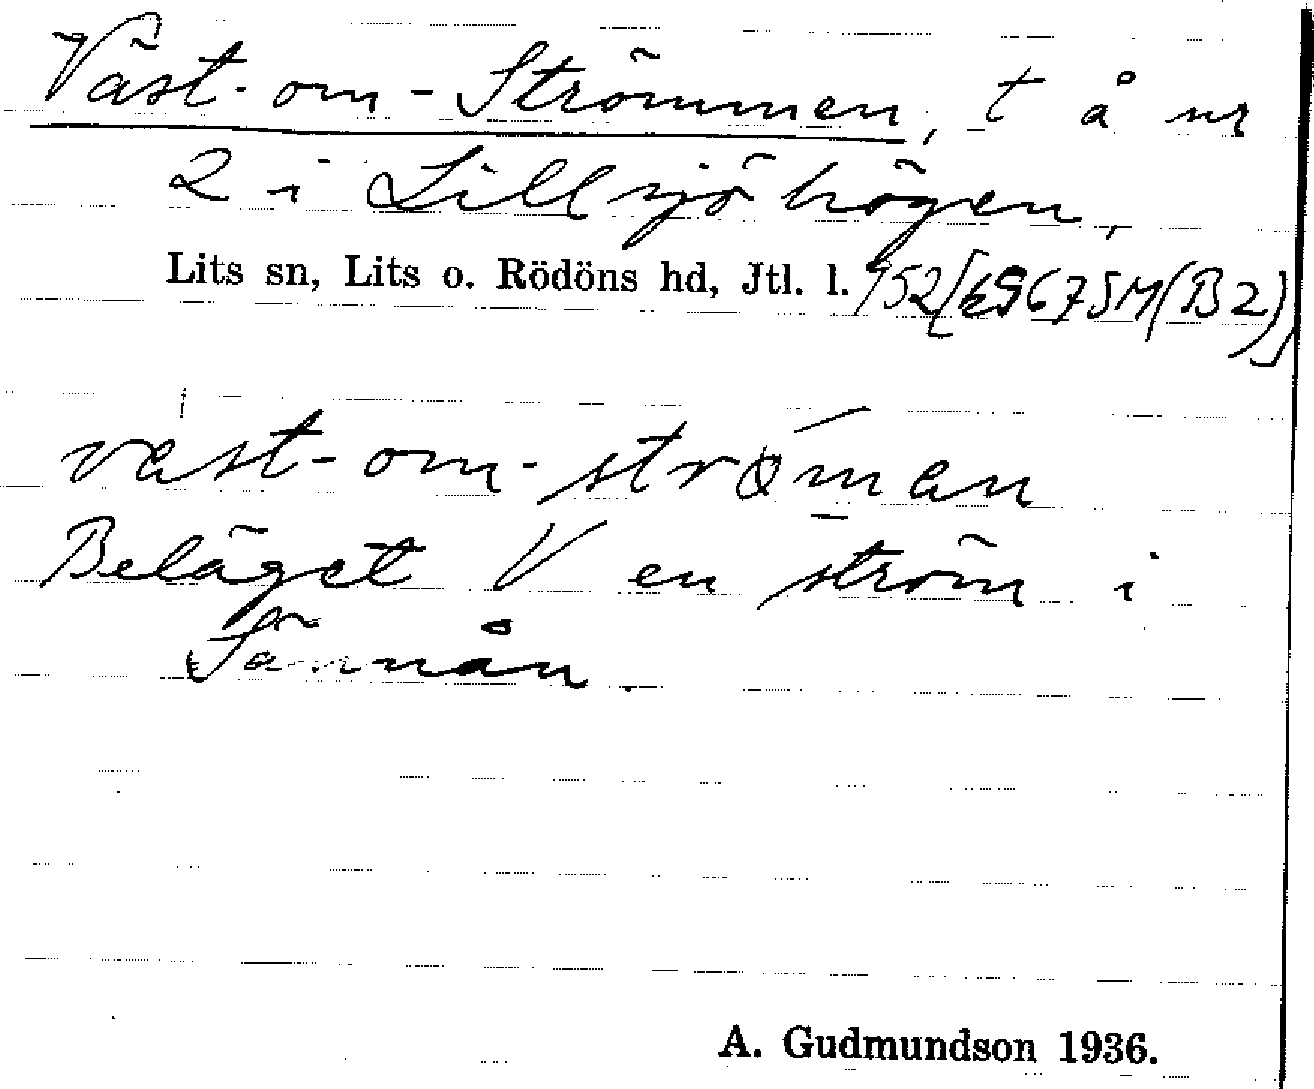 Väst-om-Strömmen, t å nr
2 i Lillsjöhögen,
Lits sn, Lits o. Rödöns hd, Jtl. l.
väst-om-strøman
Beläget V en ström i
Sännån.
A. Gudmundson 1936.